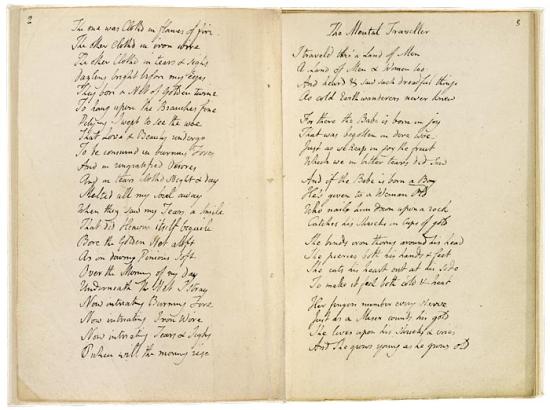 2
The one was Clothd in flames of fire
The other Clothd in iron wire
The other Clothd in tears & sighs
Dazling bright before my Eyes
They bore a Net of Golden twine
To hang upon the Branches fine
Pitying I wept to see the woe
That Love & Beauty undergo
To be consumd in burning Fires
And in ungratified Desires
And in tears Clothd Night & day
Melted all my Soul away
When they saw my Tears a Smile
That did Heaven itself beguile
Bore the Golden Net aloft
As on downy Pinions Soft
Over the Morning of my day
Underneath the Net I stray
Now intreating Burning Fire
Now intreating Iron Wire
Now intreating Tears & Sighs
O when will the morning rise
3
The Mental Traveller
I traveld thro' a Land of Men
A Land of Men & Women too
And heard & saw such dreadful things
As cold Earth wanderers never knew
For there the Babe is born in joy
That was begotten in dire woe
Just as we Reap in joy the fruit
Which we in bitter tears did Sow
And if the Babe is born a Boy
He's given to a Woman Old
Who nails him down upon a rock
Catches his Shrieks in Cups of gold
She binds iron thorns around his head
She pierces both his hands & feet
She cuts his heart out at his Side
To make it feel both cold & heat
Her fingers number every Nerve
Just as a Miser counts his gold
She lives upon his Shrieks & cries
And She grows young as he grows Old